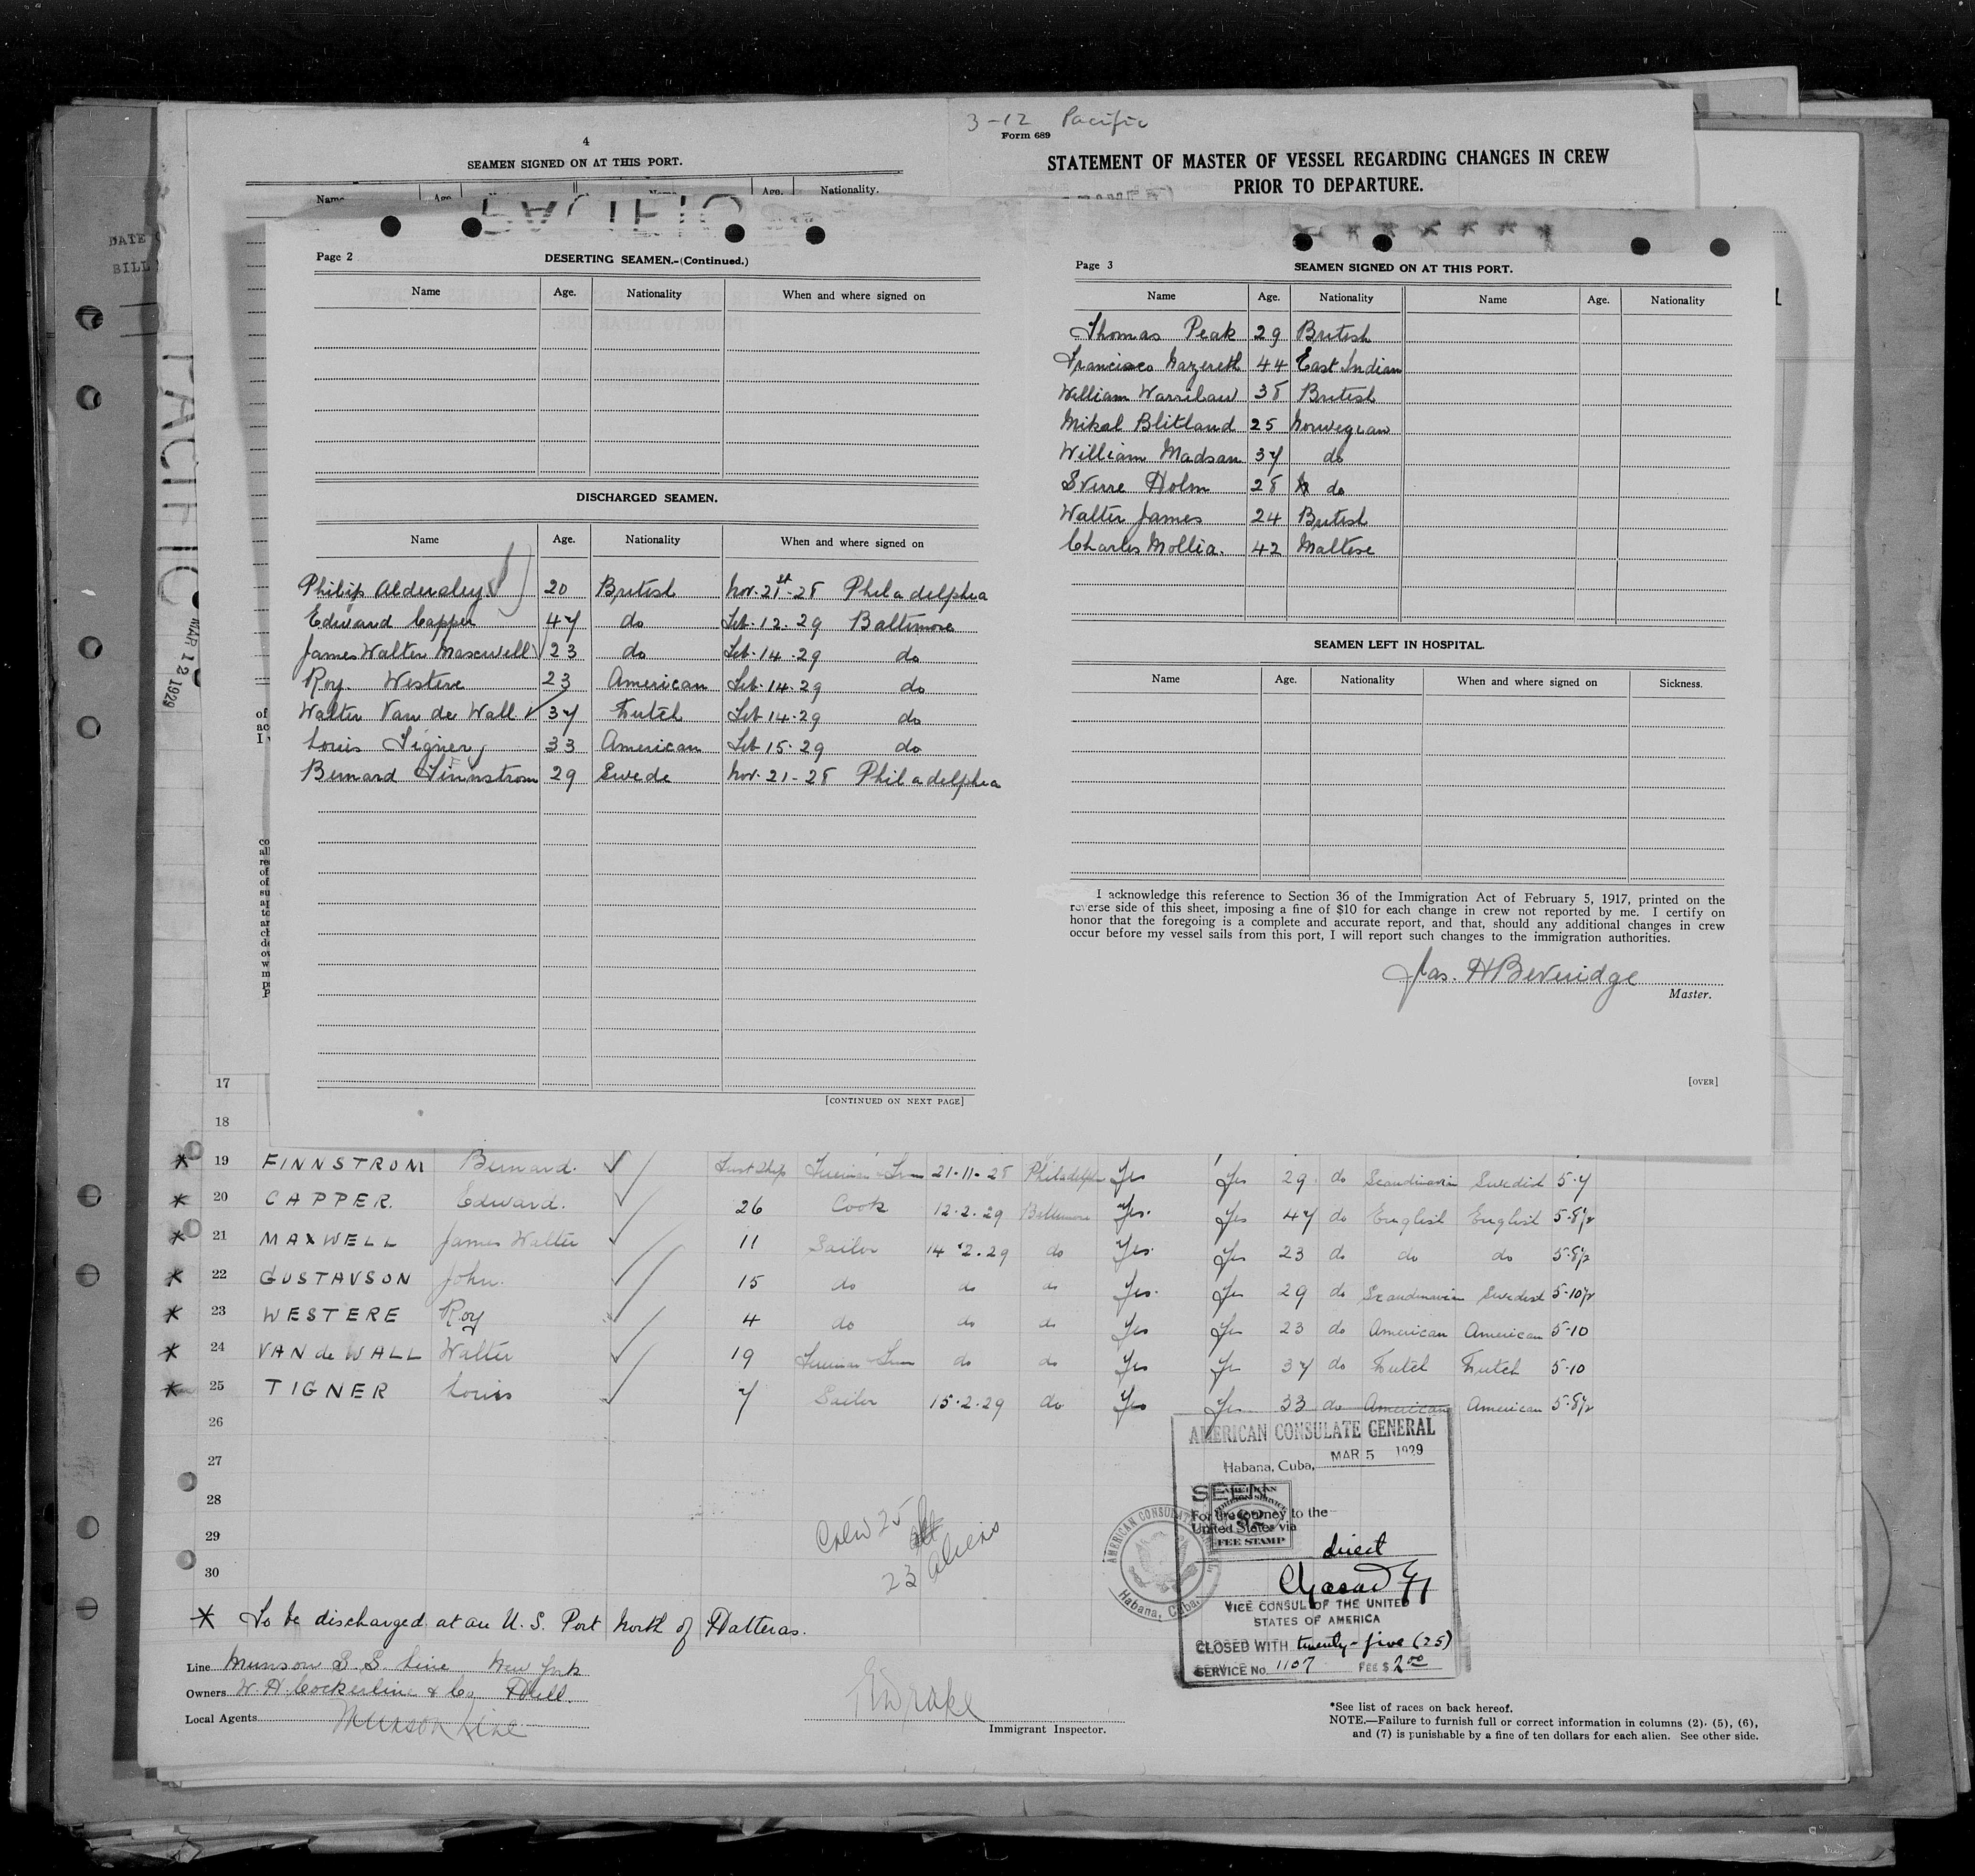 3-12 Pacific
Form 689
4
SEAMEN SIGNED ON AT THIS PORT.
STATEMENT OF MASTER OF VESSEL REGARDING CHANGES IN CREW
PRIOR TO DEPARTURE.
Name Age. Name Age. Nationality.
DATE
BILL
PACIFIC
MAR 12 1929
PACIFIC
Page 2
DESERTING SEAMEN.-(Continued.)
Name Age. Nationality When and where signed on
DISCHARGED SEAMEN.
Name Age. Nationality When and where signed on
Philip Aldersley 20 British Nov. 21st-28 Philadelphia
Edward Capper 47 do Feb. 12. 29 Baltimore
James Walter Maxwell 23 do Feb. 14. 29 do
Roy Westere 23 American Feb. 14. 29 do
Walter Van de Wall 37 Dutch Feb 14. 29 do
Louis Tigner 33 American Feb 15. 29 do
Bernard Finnstrom 29 Swede Nov. 21-28 Philadelphia
[CONTINUED ON NEXT PAGE]
Page 3
SEAMEN SIGNED ON AT THIS PORT.
Name Age. Nationality Name Age. Nationality
Thomas Peak 29 British
Francisco Nazereth 44 East Indian
William 38 British
Mikal Blitland 25 Norwegian
William Madsan 37 do
Sverre Holm 28 do
Walter James 24 British
Charles Mollia. 42 Maltese
SEAMEN LEFT IN HOSPITAL.
Name Age. Nationality When and where signed on Sickness.
I acknowledge this reference to Section 36 of the Immigration Act of February 5, 1917, printed on the
reverse side of this sheet, imposing a fine of $10 for each change in crew not reported by me. I certify on
honor that the foregoing is a complete and accurate report, and that, should any additional changes in crew
occur before my vessel sails from this port, I will report such changes to the immigration authorities.
Jas. H Beveridge
Master.
[OVER]
17
18
19 FINNSTROM Bernard. First Ship 21-11-28 Philadelph Yes Yes 29 do Scandinavian Swedish 5-7
20 CAPPER. Edward. 26 Cook 12.2.29 Baltimore Yes. Yes 47 do English English 5-8½
21 MAXWELL James Walter 11 Sailor 14.2.29 do Yes. Yes 23 do do do 5-8½
22 GUSTAVSON John. 15 do do do Yes. Yes 29 do Scandinavian Swedish 5-10½
23 WESTERE Roy 4 do do do Yes Yes 23 do American American 5-10
24 VAN de WALL Walter 19 do do Yes Yes 37 do Dutch Dutch 5-10
25 TIGNER Louis 7 Sailor 15.2.29 do Yes Yes 33 do American American 5-8½
26
27
28
29
30
Crew 25
23 aliens
AMERICAN CONSULATE GENERAL
Habana, Cuba, MAR 5 1929
SEEN
For the journey to the
United States via
direct
AMERICAN
FOREIGN SERVICE
$2
FEE STAMP
AMERICAN CONSULATE GENERAL
Habana, Cuba.
VICE CONSUL OF THE UNITED
STATES OF AMERICA
CLOSED WITH twenty-five (25)
SERVICE No. 1107 FEE $ 2.00
* To be discharged at an U. S. Port North of Hatteras.
Line Munson S. S. Line New York
Owners W. H. Cockerline & Co Hull.
Local Agents Munson Line
Drake
Immigrant Inspector.
*See list of races on back hereof.
NOTE.—Failure to furnish full or correct information in columns (2), (5), (6),
and (7) is punishable by a fine of ten dollars for each alien. See other side.